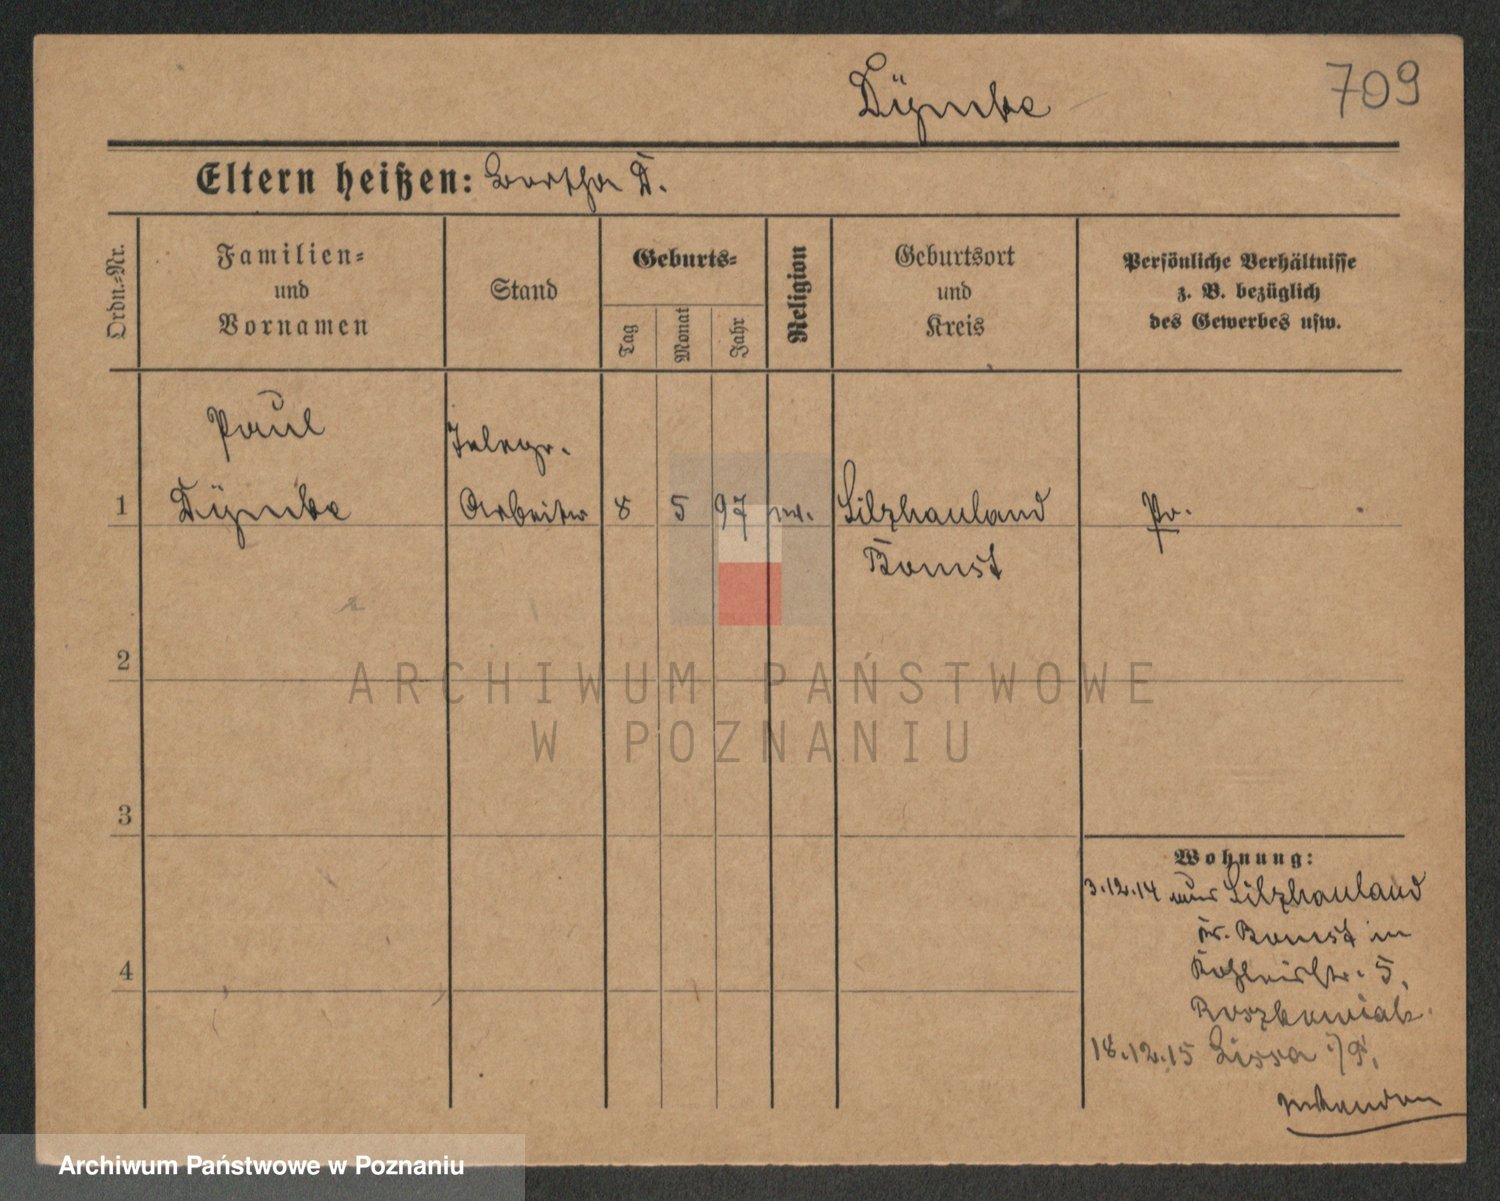 Dÿmke
709
Eltern heißen: Bertha D.
Ordn.=Nr.
Familien=
und
Vornamen
Stand
Geburts=
Tag
Monat
Jahr
Religion
Geburtsort
und
Kreis
Persönliche Verhältnisse
z. B. bezüglich
des Gewerbes usw.
Paul
Telegr.
1 Dÿmke Arbeiter 8 5 97 ev. Silzhauland Pr.
Bomst
2
ARCHIWUM PAŃSTWOWE
W POZNANIU
3
Wohnung:
3.12.14 aus Silzhauland
Kr. Bomst in
5.
4
Roszkowiak.
18.12.15 Lissa i/P.
Archiwum Państwowe w Poznaniu